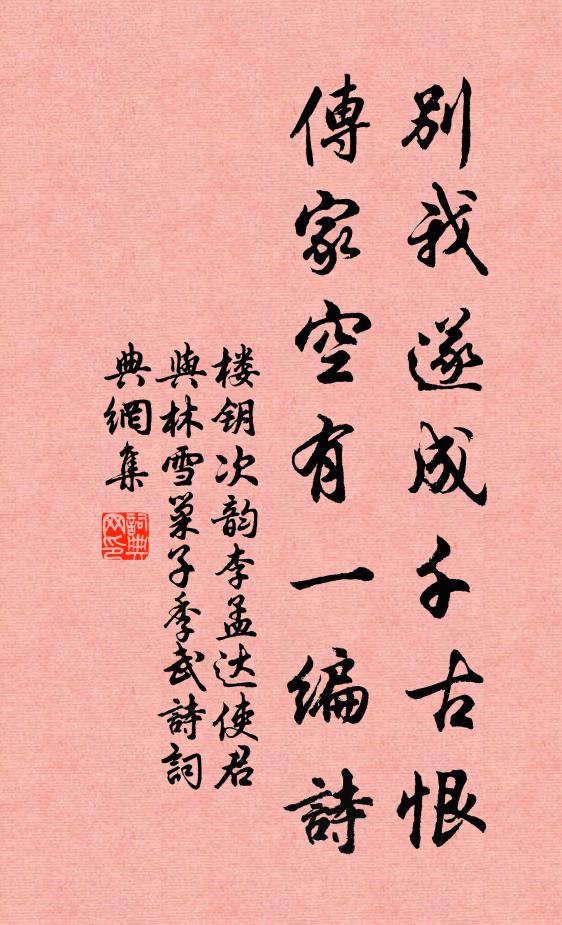 別我遂成千古恨
傳家空有一編詩
楼钥次韵李孟达使君
與林雪巢子季武詩詞
典網集
詞典
网印